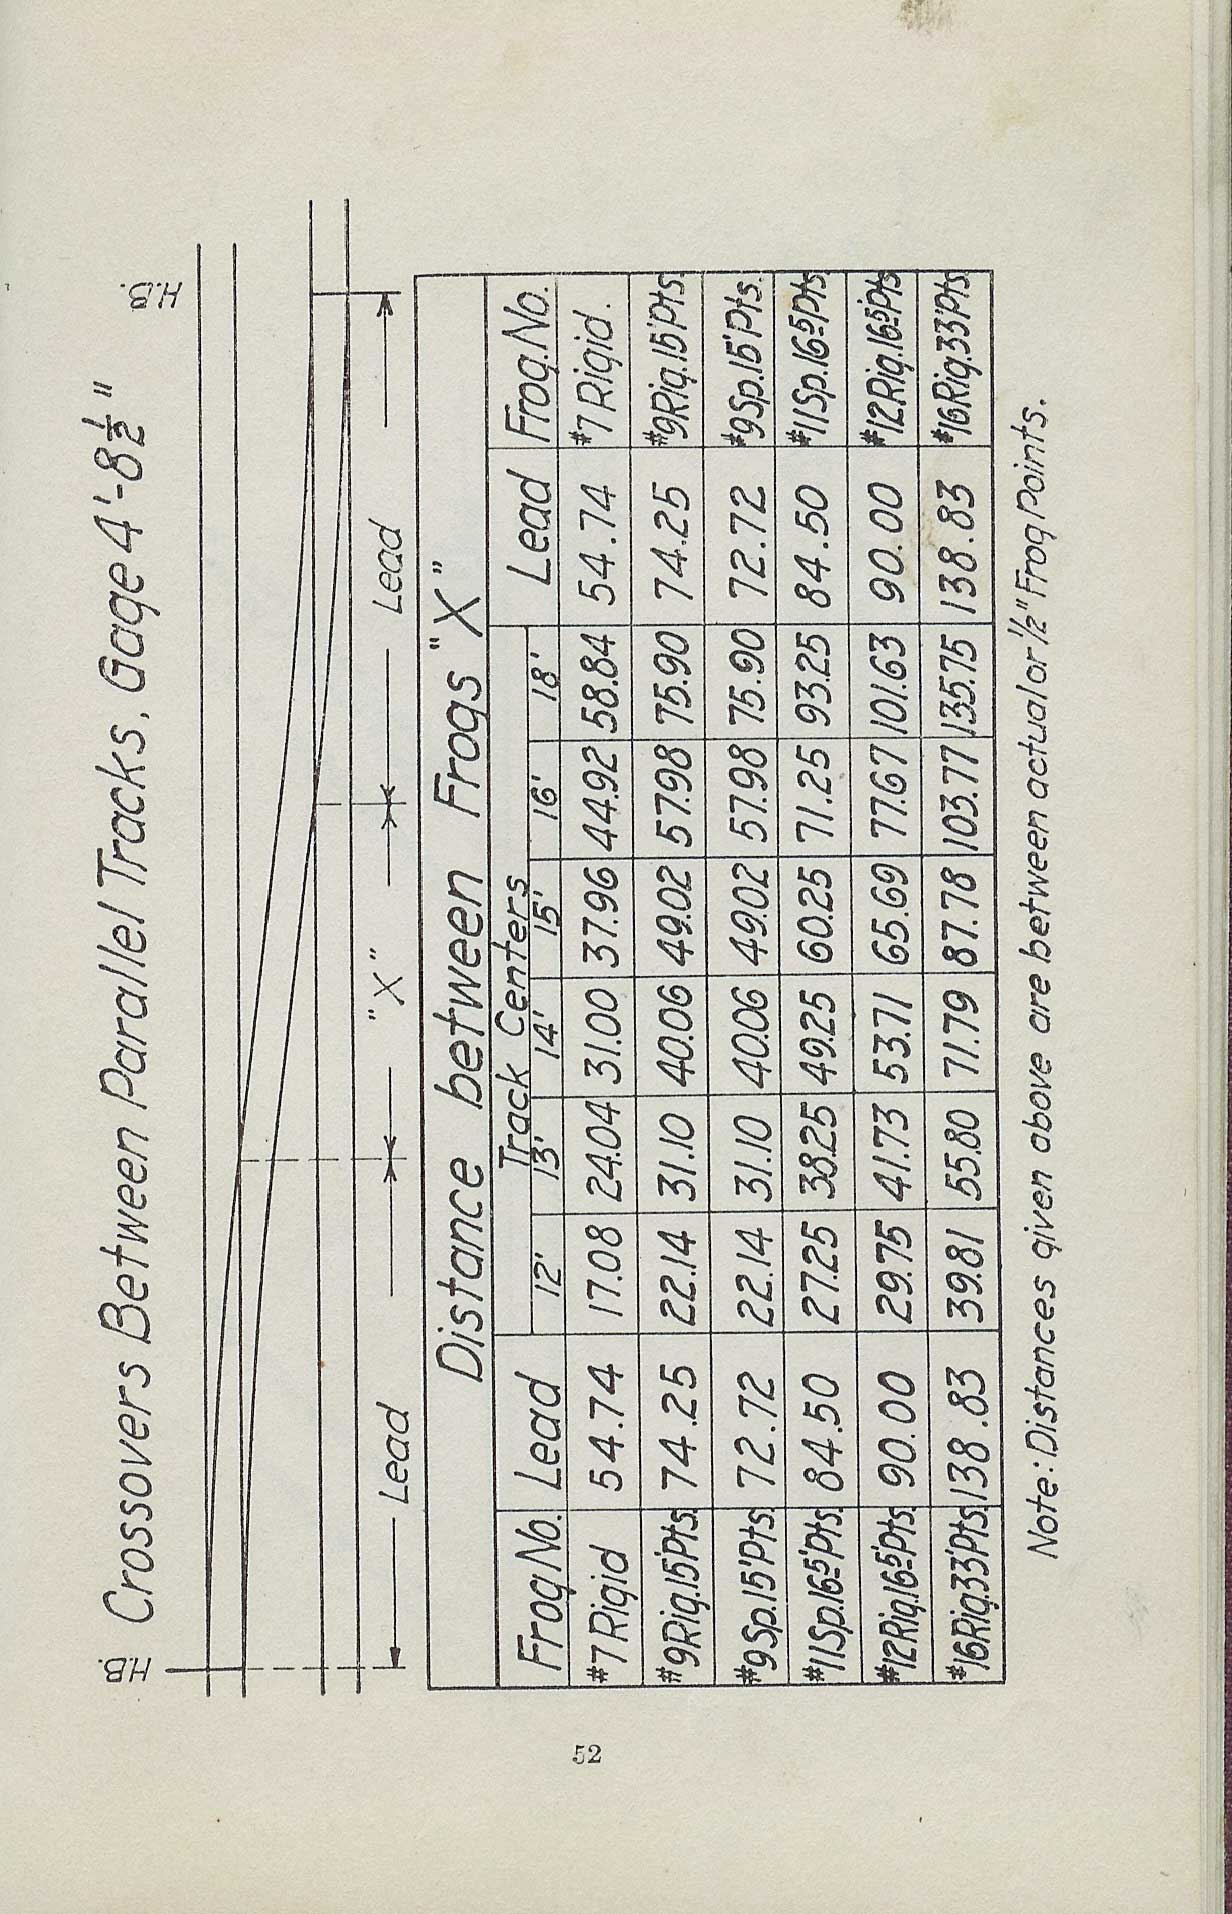 Crossovers Between Parallel Tracks, Gage 4'-8½"
H.B. H.B.
Lead "X" Lead
Distance between Frogs "X"
Frog No. Lead Track Centers Lead Frog No.
12' 13' 14' 15' 16' 18'
#7 Rigid 54.74 17.08 24.04 31.00 37.96 44.92 58.84 54.74 #7 Rigid.
#9 Rig. 15' Pts. 74.25 22.14 31.10 40.06 49.02 57.98 75.90 74.25 #9 Rig. 15' Pts.
#9 Sp. 15' Pts. 72.72 22.14 31.10 40.06 49.02 57.98 75.90 72.72 #9 Sp. 15' Pts.
#11 Sp. 16⁵' Pts. 84.50 27.25 38.25 49.25 60.25 71.25 93.25 84.50 #11 Sp. 16⁵ Pts
#12 Rig. 16⁵' Pts. 90.00 29.75 41.73 53.71 65.69 77.67 101.63 90.00 #12 Rig. 16⁵' Pts
#16 Rig. 33' Pts. 138.83 39.81 55.80 71.79 87.78 103.77 135.75 138.83 #16 Rig. 33' Pts.
Note: Distances given above are between actual or ½" Frog Points.
52